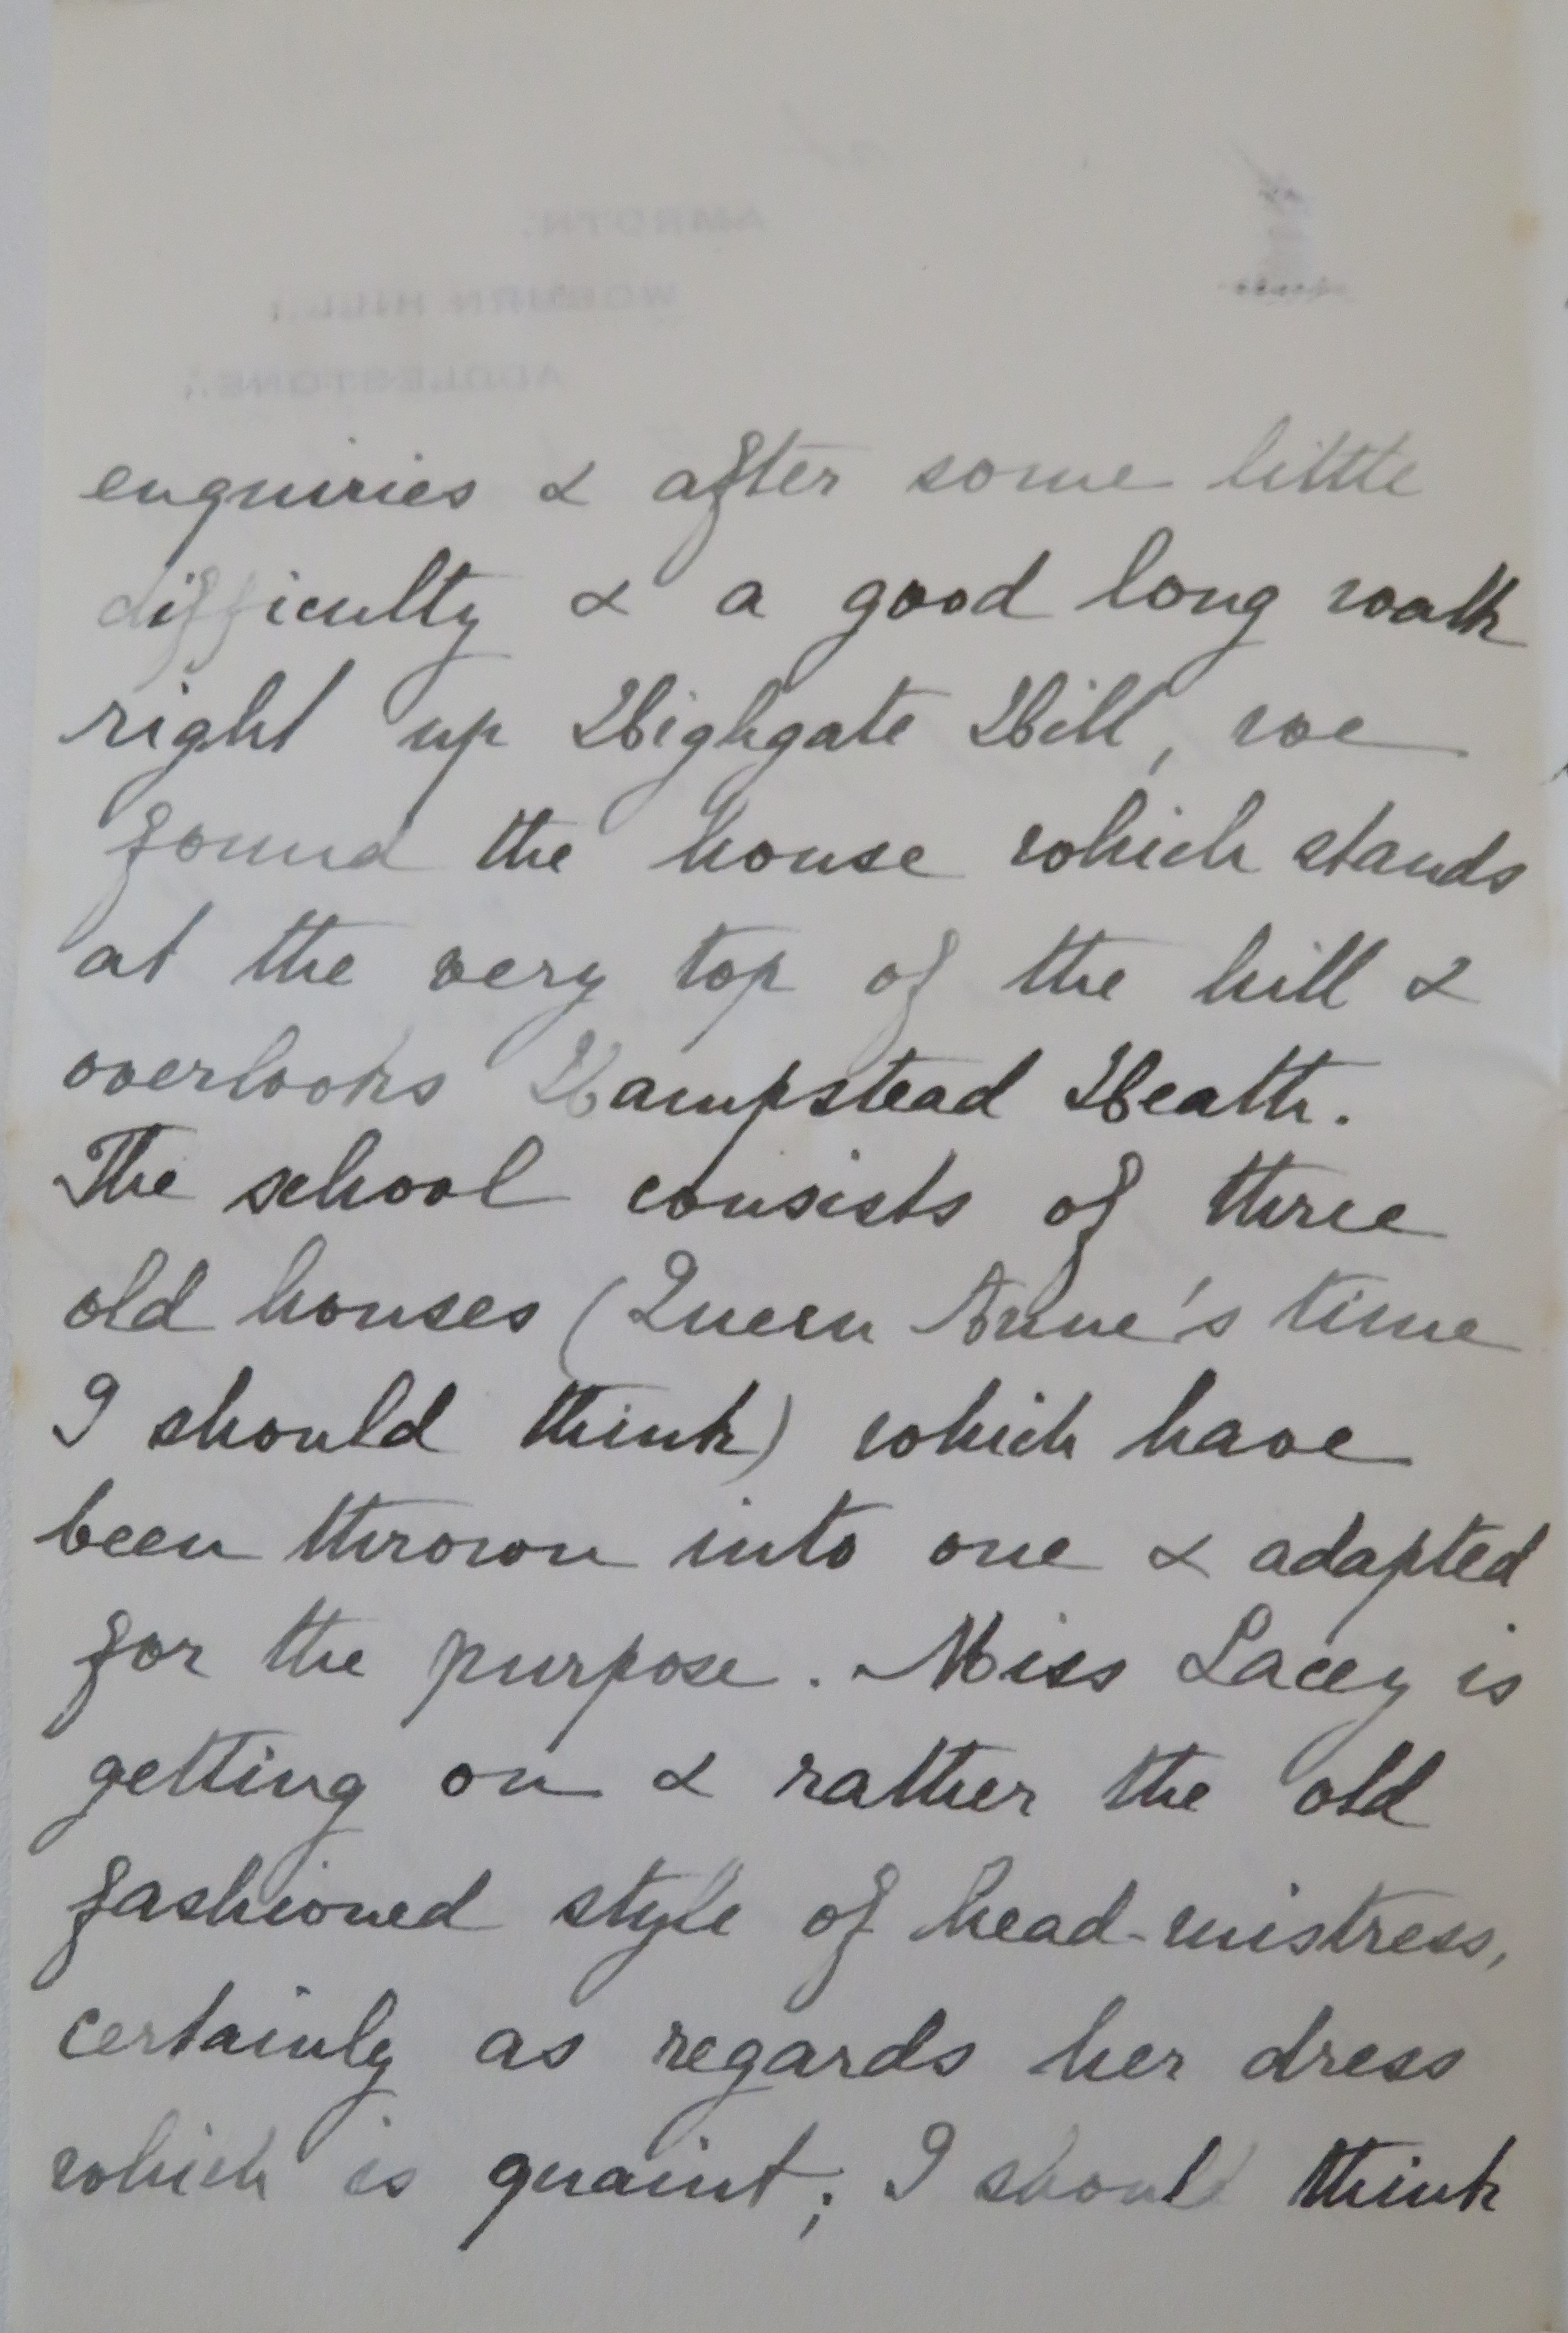 AMROTH.
WOBURN HILL,
ADDLESTONE.
enquiries & after some little
difficulty & a good long walk
right up Highgate Hill, we
found the house which stands
at the very top of the hill &
overlooks Hampstead Heath.
The school consists of three
old houses (Queen Anne's time
I should think) which have
been thrown into one & adapted
for the purpose. Miss Lacey is
getting on & rather the old
fashioned style of head-mistress,
certainly as regards her dress
which is quaint; I should think